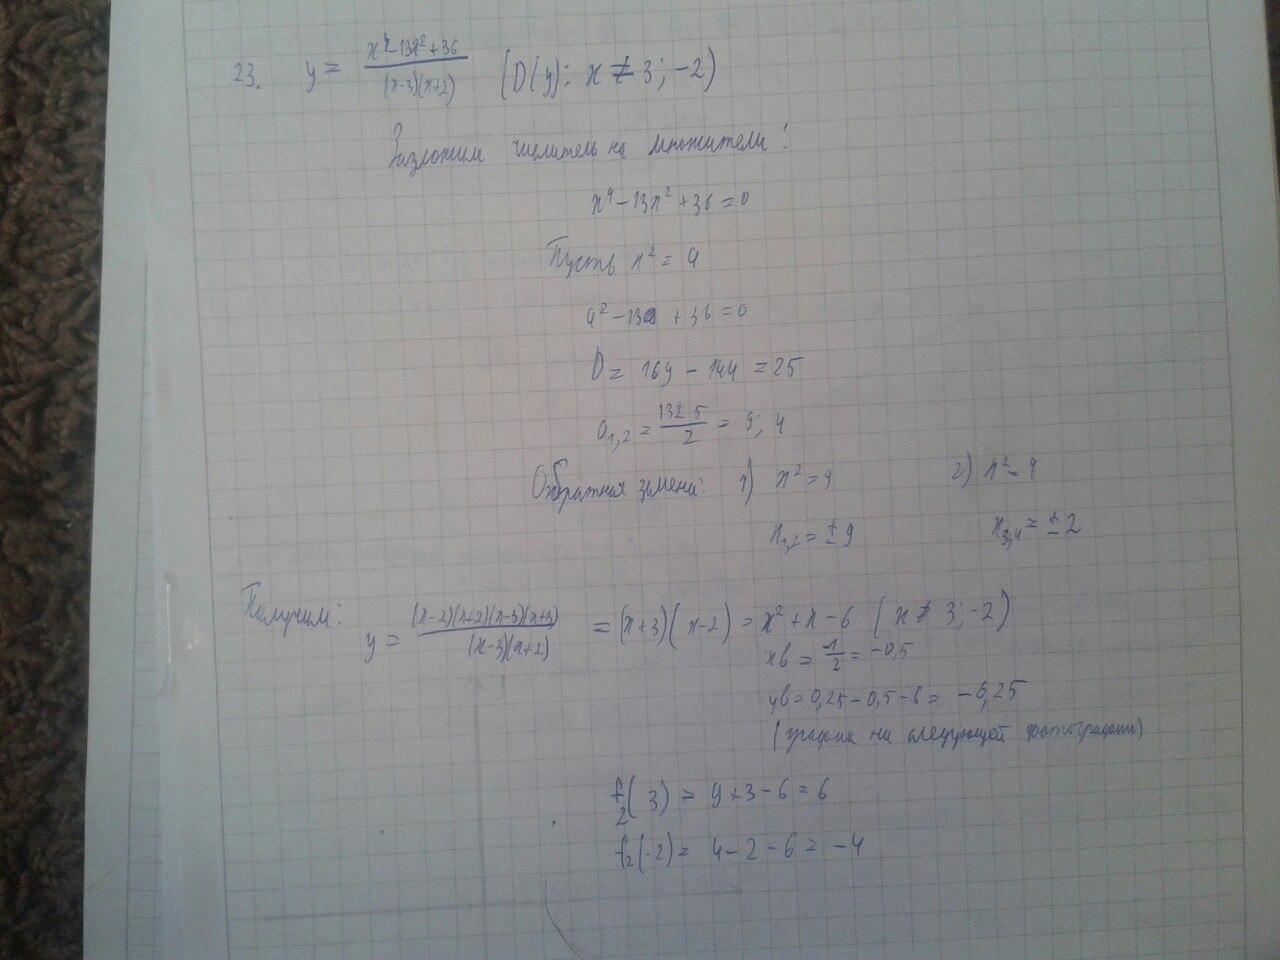 23. y = \frac{x^4-13x^2+36}{(x-3)(x+2)} (D(y): x ≠ 3; -2)
Разложим числитель на множители:
x^4-13x^2+36=0
Пусть x^2 = a
a^2-13a+36=0
D = 169-144=25
a_{1,2} = \frac{13±5}{2} = 9; 4
Обратная замена: 1) x^2=9 2) x^2=4
x_{1,2} = ±9 x_{3,4} = ±2
Получим: y = \frac{(x-2)(x+2)(x-3)(x+3)}{(x-3)(x+2)} = (x+3)(x-2) = x^2+x-6 (x ≠ 3; -2)
xв = \frac{-1}{2} = -0,5
yв = 0,25-0,5-6 = -6,25
(график на следующей фотографии)
f_2(3) = 9+3-6 = 6
f_2(-2) = 4-2-6 = -4